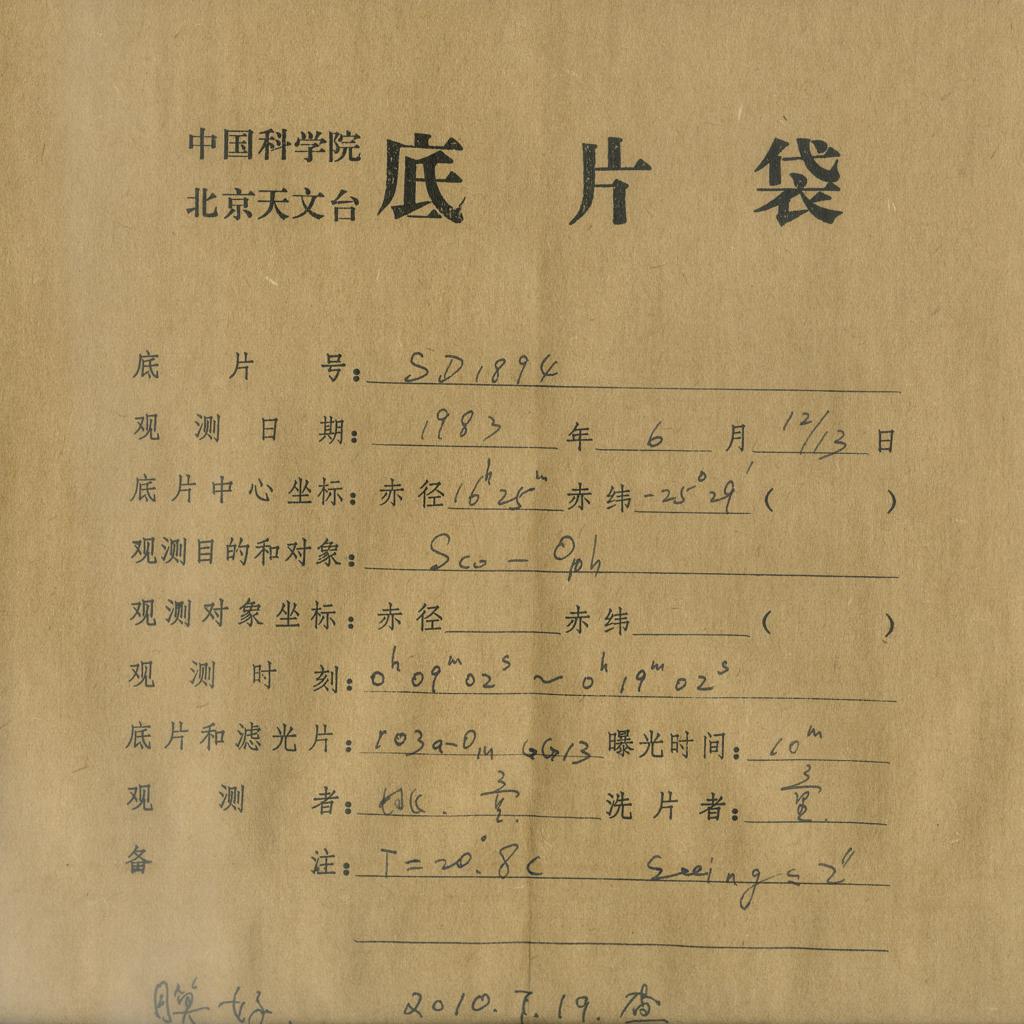 中国科学院
北京天文台
底片袋
底片号: SD1894
观测日期: 1983年 6月 12/13日
底片中心坐标: 赤径 16h25m 赤纬 -25°29′ ( )
观测目的和对象: Sco - Oph
观测对象坐标: 赤径 赤纬 ( )
观测时刻: 0h09m02s ~ 0h19m02s
底片和滤光片: 103a-O GG13 曝光时间: 10m
观测者: 洗片者:
备注: T=20.°8C Seeing ≤ 2″
膜好. 2010.7.19.